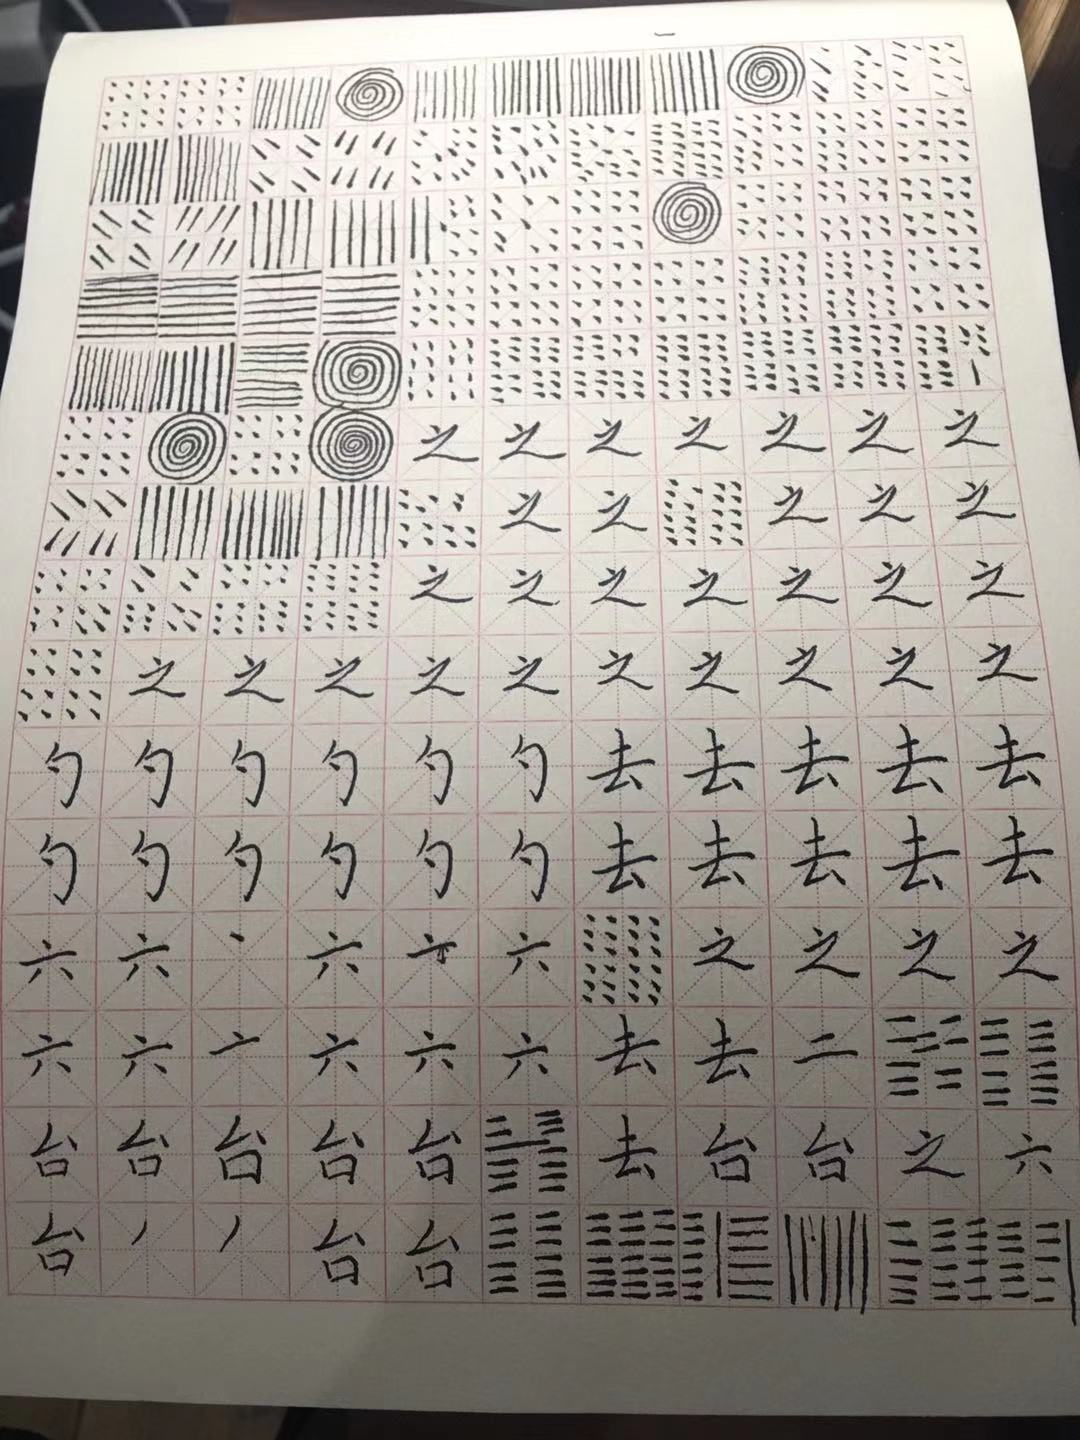 之 之 之 之 之 之 之
之 之 之 之 之
之 之 之 之 之 之 之
之 之 之 之 之 之 之 之 之 之
勺 勺 勺 勺 勺 勺 去 去 去 去 去
勺 勺 勺 勺 勺 勺 去 去 去 去 去
六 六 六 六 之 之 之 之
六 六 亠 六 六 六 去 去 二
台 台 台 台 台 去 台 台 之 六
台 台 台